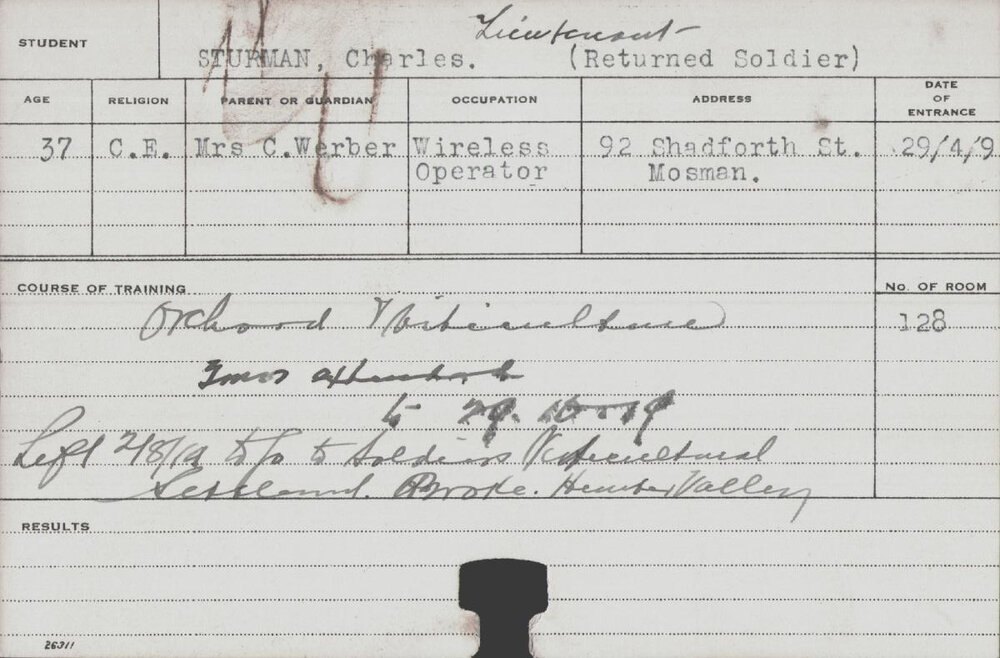 Lieutenant
STUDENT STURMAN, Charles. (Returned Soldier)
AGE RELIGION PARENT OR GUARDIAN OCCUPATION ADDRESS DATE OF ENTRANCE
37 C.E. Mrs C.Werber Wireless 92 Shadforth St. 29/4/9
Operator Mosman.
COURSE OF TRAINING No. OF ROOM
Orchard & Viticulture 128
3mos
to 29.
Left 2/8/19 to go to Soldiers Viticultural
Settlement. Broke. Hunter Valley
RESULTS
26311